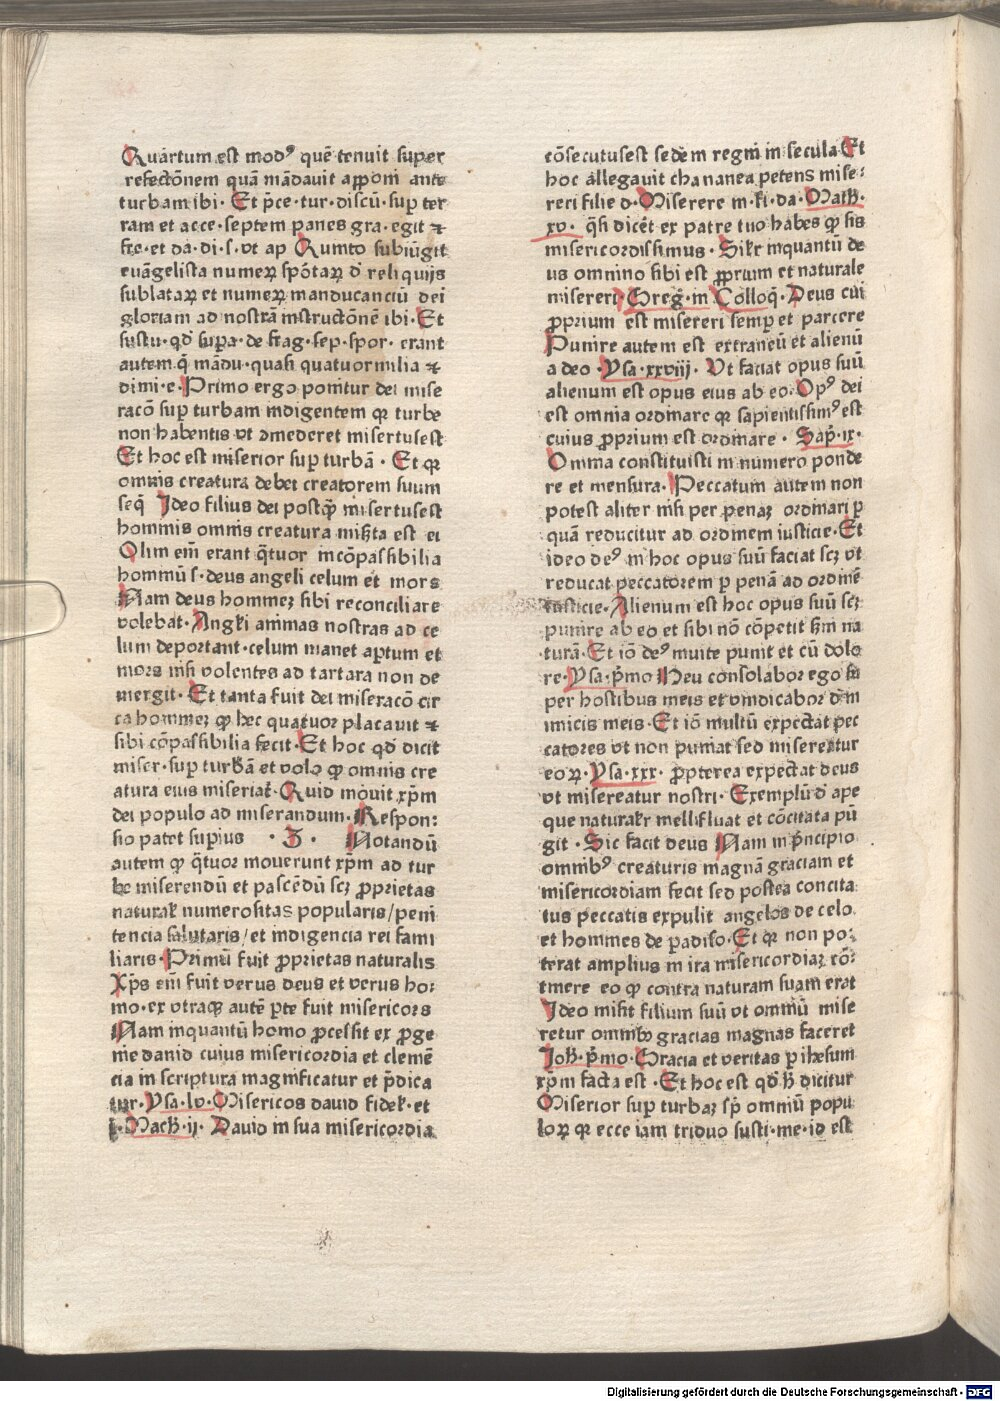 Quartum est modꝰ quē tenuit super
refectōnem quā mādavit apponi ante
turbam ibi· Et p̄ce·tur·discū·suꝑ ter
ram et acce·septem panes gra·egit ⁊
fre·et da·di·s·vt ap Quinto subiūgit
euāgelista numeꝝ spōrtaꝝ d̄ reliquijs
sublataꝝ et numeꝝ manducanciū dei
gloriam ad nostrā instructōnē ibi·Et
sustu·qd̄ suꝑa·de frag·sep·spor·erant
autem q̄ mādu·quasi quatuor milia ⁊
dimi·e·Primo ergo ponitur dei mise
racō suꝑ turbam indigentem qꝛ turbe
non habentis vt ꝯmederet misertusest
Et hoc est miserior suꝑ turbā·Et qꝛ
omnis creatura debet creatorem suum
seq̄ Ideo filius dei postq̄ misertusest
hominis omnis creatura misͬta est ei
Olim em̄ erant q̄tuor incōpassibilia
hominū s·deus angeli celum et mors
Nam deus homineꝫ sibi reconciliare
volebat·Angli animas nostras ad ce
lum deportant·celum manet aꝑtum et
mors nisi volentes ad tartara non de
mergit·Et tanta fuit dei miseracō cir
ca hominez ꝙ hec quatuor placauit ⁊
sibi cōpassibilia fecit·Et hoc qd̄ dicit
miser·suꝑ turbā et volo ꝙ omnis cre
atura eius miseriat̄·Quid mouit xp̄m
dei populo ad miserandum·Respon:
sio patet suꝑius ·3· Notandū
autem ꝙ q̄tuor mouerunt xp̄m ad tur
be miserendū et pascēdū scꝫ ꝓprietas
naturał numerositas popularis/peni
tencia salutaris/et indigencia rei fami
liaris·Primū fuit ꝓprietas naturalis
Xp̄s em̄ fuit verus deus et verus ho:
mo·ex vtraqꝫ autē ꝑte fuit misericors
Nam inquantū homo ꝓcessit ex ꝓge
nie dauid cuius misericordia et clemē
cia in scriptura magnificatur et p̄dica
tur·Ysa·lv·Misericos dauid fidel·et
j·Mach·ij·Dauid in sua misericordia
cōsecutusest sedem regni in secula·Et
hoc allegauit chananea petens mise:
reri filie d·Miserere m·fi·da·Math·
xv· q̄si dicēt ex patre tuo habes ꝙ sis
misericordissimus·Silr inquantū de
us omnino sibi est ꝓprium et naturale
misereri·Greg̓·in Colloq̄·Deus cui
ꝓprium est misereri semꝑ et parcere
Punire autem est extraneū et alienū
a deo·Ysa·xxviij·Vt faciat opus suū
alienum est opus eius ab eo·Opꝰ dei
est omnia ordinare qꝛ sapientissimꝰ est
cuius ꝓprium est ordinare·Sap̄·ix·
Omnia constituisti in numero ponde
re et mensura·Peccatum autem non
potest aliter nisi per penaꝫ ordinari ꝑ
quā reducitur ad ordinem iusticie·Et
ideo deꝰ in hoc opus suū faciat scꝫ vt
reducat peccatorem ꝑ penā ad ordinē
iusticie·Alienum est hoc opus suū scꝫ
punire ab eo et sibi nō cōpetit scd̄m na
turā·Et iō deꝰ inuite punit et cū dolo
re·Ysa·p̄mo Heu consolabor ego su
per hostibus meis et vindicabor d̄ in
imicis meis·Et iō multū expectat pec
catores vt non puniat sed misereatur
eoꝝ·Ysa·xxx·ꝓpterea expectat deus
vt misereatur nostri·Exemplū d̄ ape
que naturalr̄ mellifluat et cōcitata pū
git·Sic facit deus Nam in p̄ncipio
omnibꝰ creaturis magnā graciam et
misericordiam fecit sed postea concita
tus peccatis expulit angelos de celo
et homines de ꝑadiso·Et qꝛ non po:
terat amplius in ira misericordiaꝫ cō:
tinere eo ꝙ contra naturam suam erat
Ideo misit filium suū vt omniū mise
retur omnibꝰ gracias magnas faceret
Joh·p̄mo·Gracia et veritas ꝑ ihesum
xp̄m facta est·Et hoc est qd̄ h̄ dicitur
Miserior suꝑ turbaꝫ sꝑ omniū popu
loꝝ qꝛ ecce iam triduo susti·me·id est
Digitalisierung gefördert durch die Deutsche Forschungsgemeinschaft · DFG